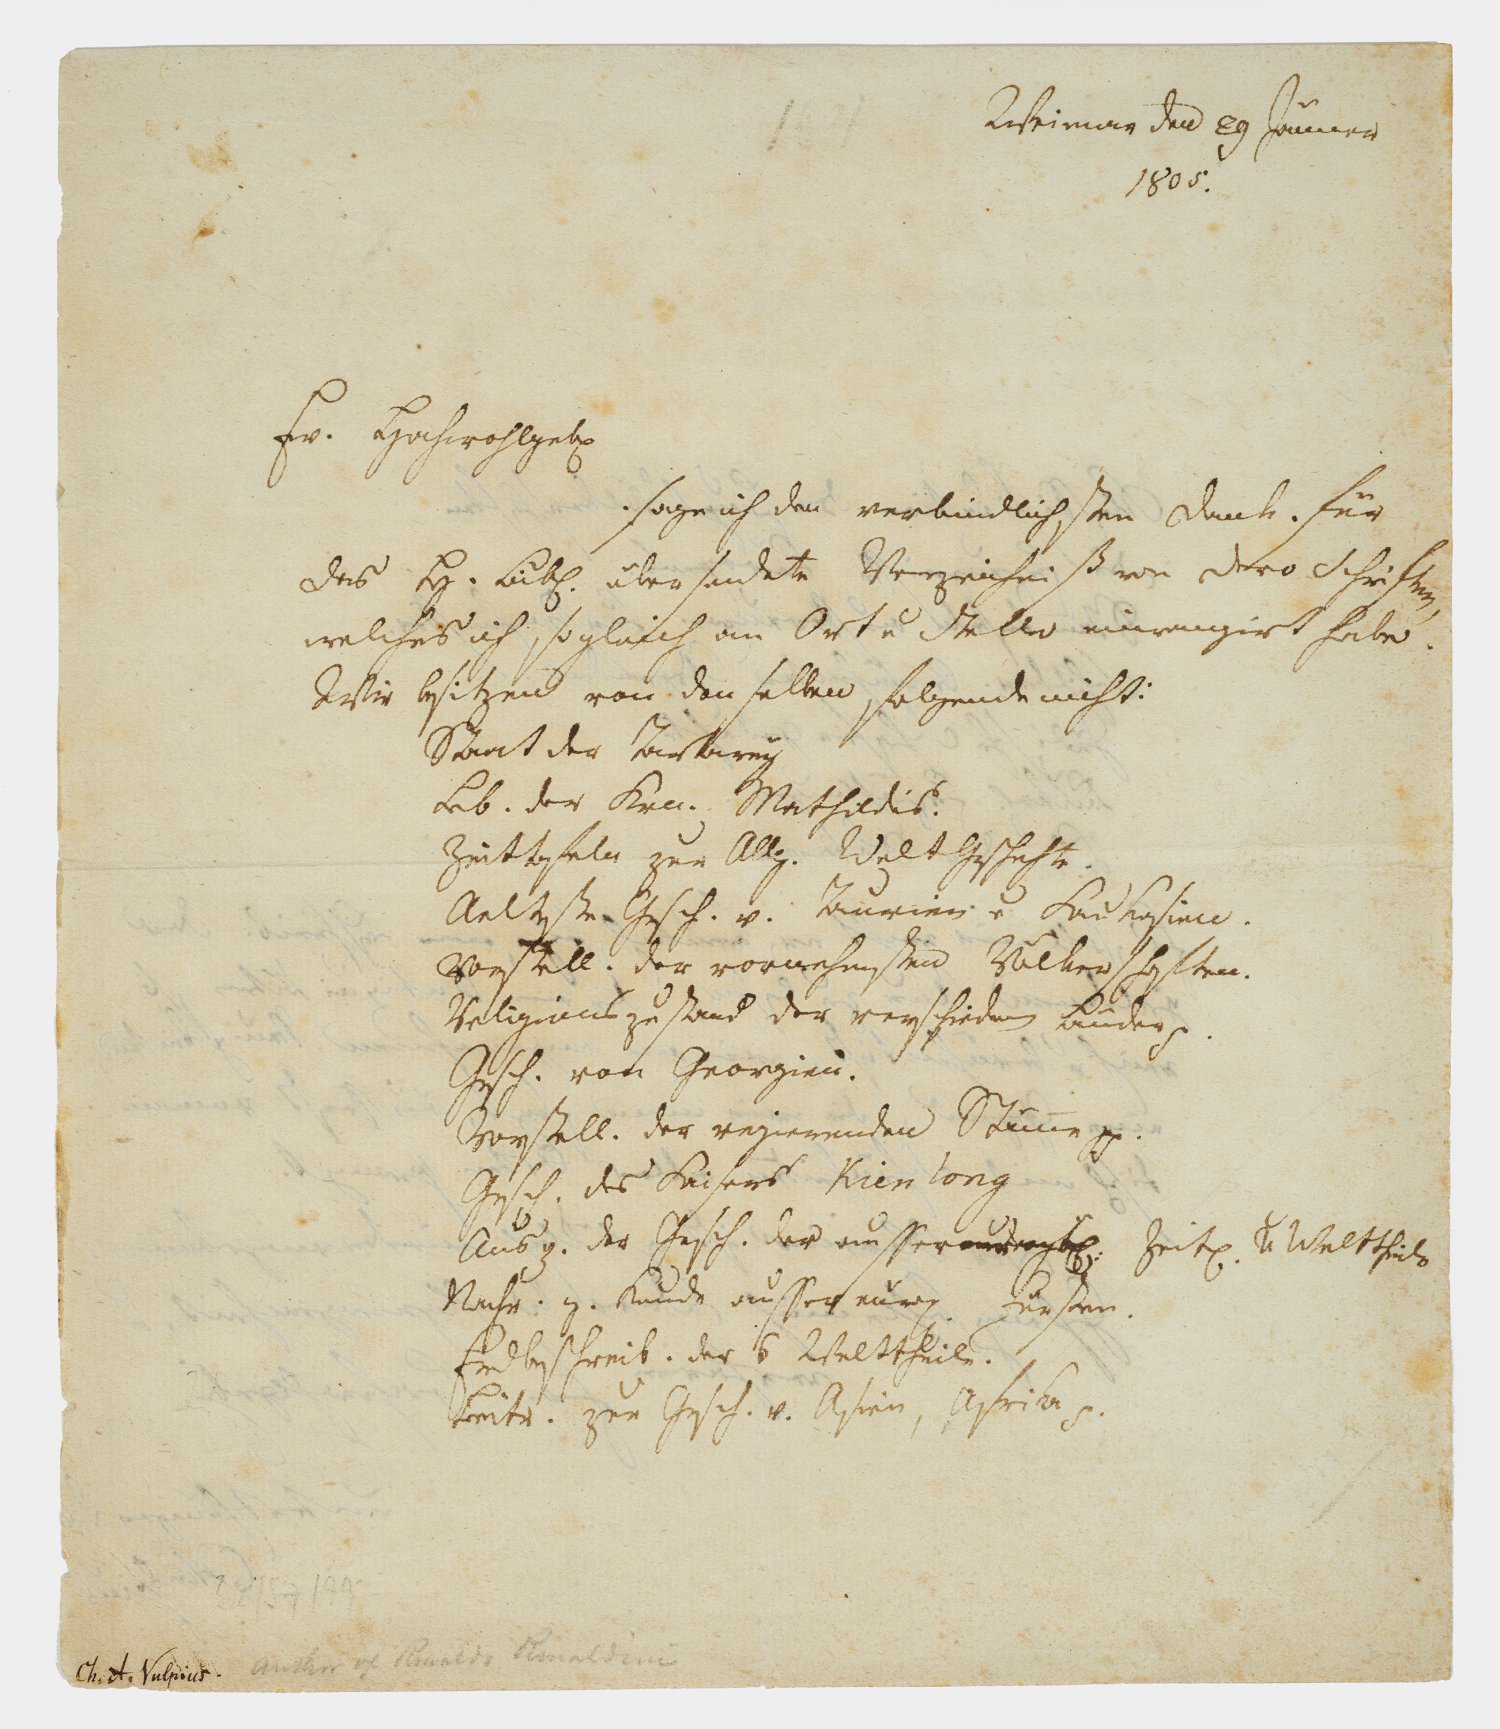 Weimar den 29 Jänner
1805.
Ew. Hochwohlgeb.
sage ich den verbindlichsten Dank. für
das H. übersendete Verzeichniß von Dero Schriften,
welches ich sogleich an Ort u Stelle einrangirt habe.
Wir besitzen von denselben folgende nicht:
Staat der Tartarey
Leb. der Kön. Mathildis.
Zeittafeln zur Allg. Welt Geschichte.
Aelteste Gesch. v. Taurien u Kaukasien.
Vorstell. der vornehmsten Völkerschaften.
Religionszustand der verschiednen Länder p.
Gesch. von Georgien.
Vorstell. der regierenden Stämme pp.
Gesch. des Kaisers Kien long
Ausz. der Gesch. der ausser Zeit. u Welttheile
Nachr. z. Kunde aussereurop. Fürsten.
Erdbeschreib. der 5 Welttheile.
Beitr. zur Gesch. v. Asien, Afrika p.
Ch. A. Vulpius. Author of Rinaldo Rinaldini